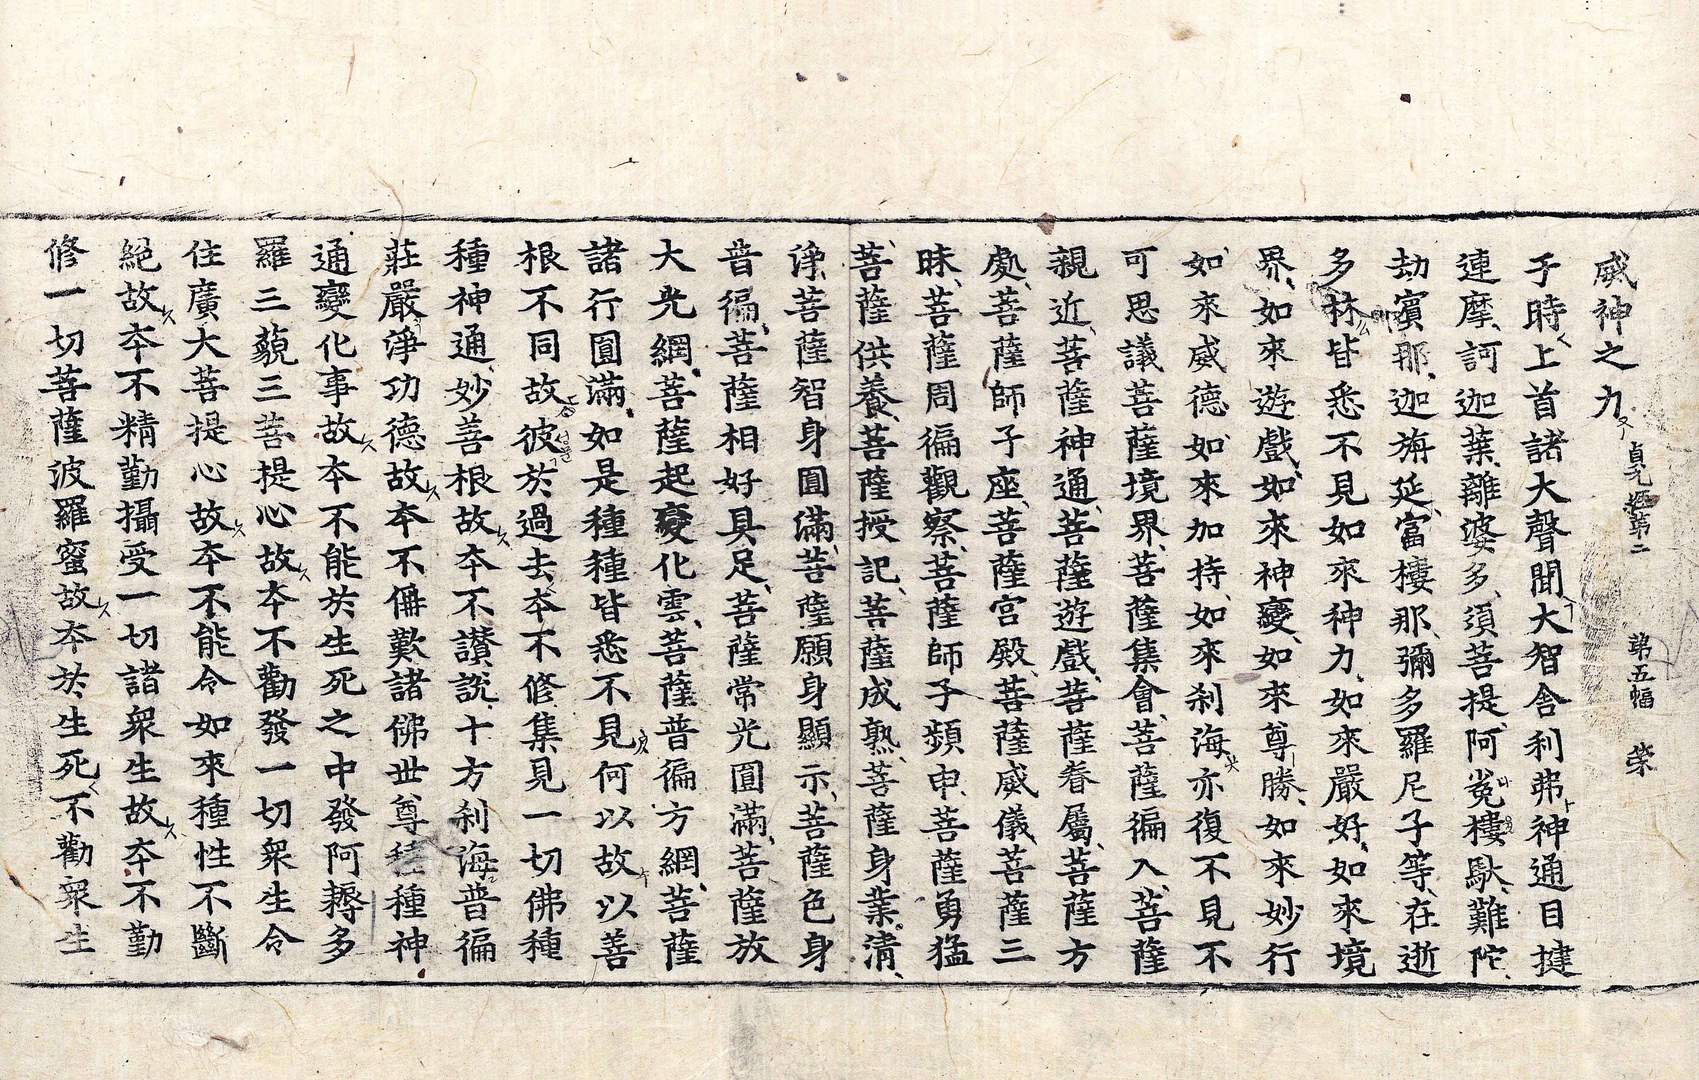 威神之力
貞元經第二 第五幅 榮
于時上首諸大聲聞大智舍利弗神通目揵
連摩訶迦葉離婆多須菩提阿㝹樓馱難陀
劫賓那迦旃延富樓那彌多羅尼子等在逝
多林皆悉不見如來神力如來嚴好如來境
界如來遊戲如來神變如來尊勝如來妙行
如來威德如來加持如來刹海亦復不見不
可思議菩薩境界菩薩集會菩薩徧入菩薩
親近菩薩神通菩薩遊戲菩薩眷屬菩薩方
處菩薩師子座菩薩宮殿菩薩威儀菩薩三
昧菩薩周徧觀察菩薩師子頻申菩薩勇猛
菩薩供養菩薩授記菩薩成熟菩薩身業清
淨菩薩智身圓滿菩薩願身顯示菩薩色身
普徧菩薩相好具足菩薩常光圓滿菩薩放
大光網菩薩起變化雲菩薩普徧方網菩薩
諸行圓滿如是種種皆悉不見何以故以善
根不同故彼於過去夲不修集見一切佛種
種神通妙善根故夲不讃說十方刹海普徧
莊嚴淨功德故夲不稱歎諸佛世尊種種神
通變化事故夲不能於生死之中發阿耨多
羅三藐三菩提心故夲不勸發一切衆生令
住廣大菩提心故夲不能令如來種性不斷
絕故夲不精勤攝受一切諸衆生故夲不勤
修一切菩薩波羅蜜故夲於生死不勸衆生